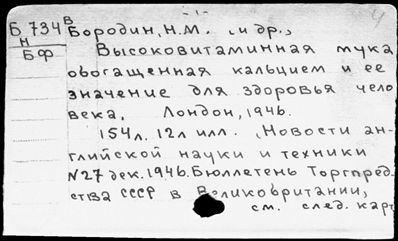 Б 734 в Бородин, Н.М. , и др.,
н
БФ Высоковитаминная мука
обогащенная кальцием и ее
значение для здоровья чело
века, Лондон, 1946.
154л. 12л илл. , Новости ан-
глийской науки и техники
N27 дек. 1946. Бюллетень Торгпред-
ства СССР в Великобритании,
см. след. карт